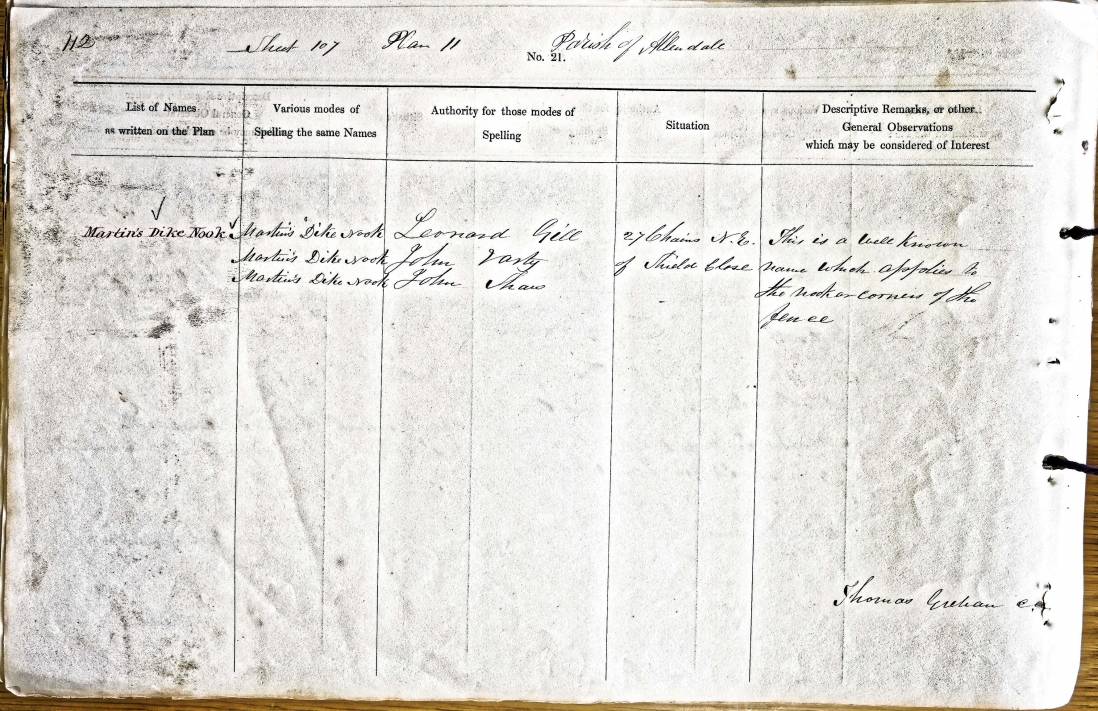 112 Sheet 107 Plan 11 Parish of Allendale
No. 21.
List of Names
as written on the Plan
Various modes of
Spelling the same Names
Authority for those modes of
Spelling
Situation
Descriptive Remarks, or other
General Observations
which may be considered of Interest
Martin's Dike Nook
Martin's Dike Nook
Martin's Dike Nook
Martin's Dike Nook
Leonard Gill
John Varty
John Shaw
27 Chains N.E.
of Shield Close
This is a well known
name which applies to
the nook or corners of the
fence
Thomas